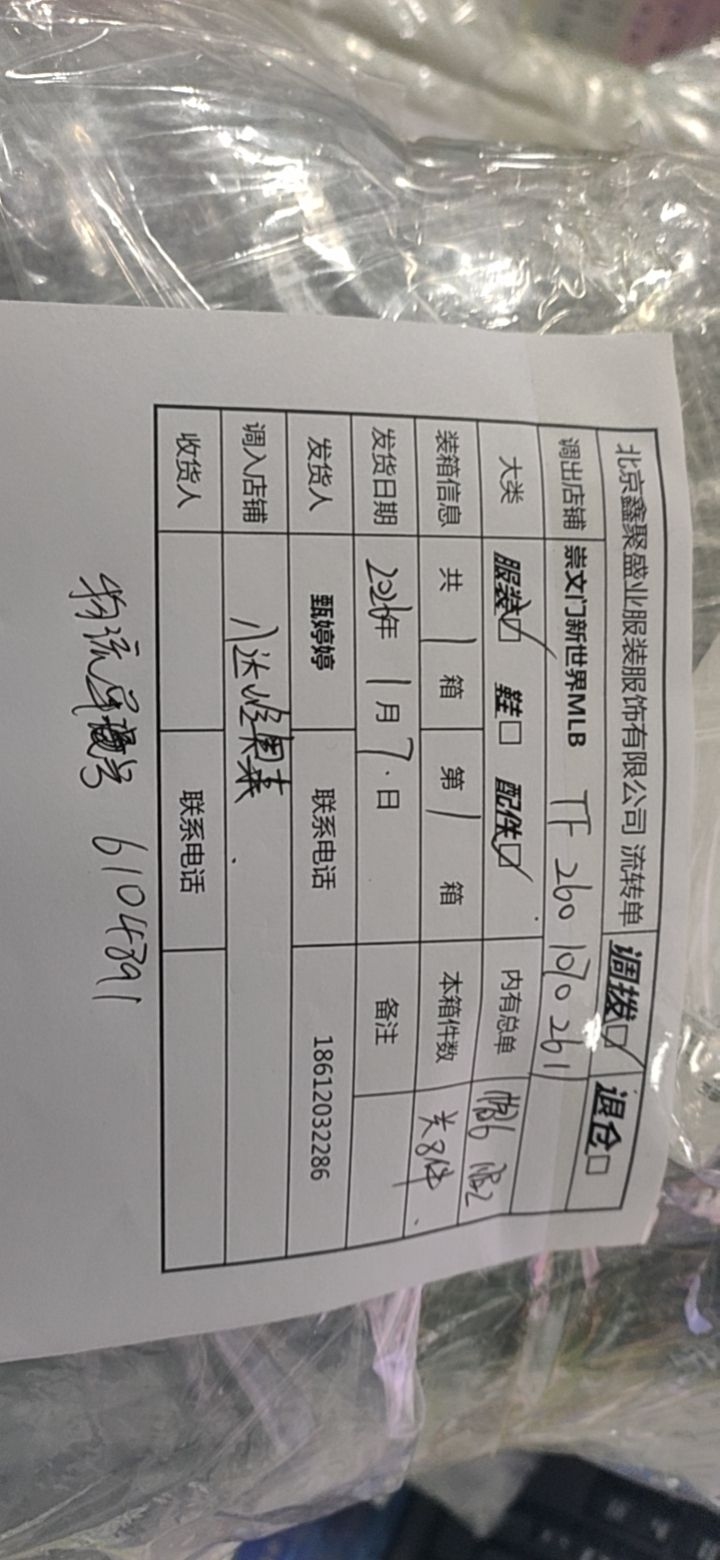 北京鑫聚盛业服装服饰有限公司 流转单 调拨☑ 退仓□
调出店铺 崇文门新世界MLB TF 260 1070 261
大类 服装☑ 鞋□ 配件☑ 内有总单
装箱信息 共 1 箱 第 1 箱 本箱件数 关8件
发货日期 2026年 1月7日 备注
发货人 甄婷婷 联系电话 18612032286
调入店铺 八达岭奥莱
收货人 联系电话
物流单号 6104891